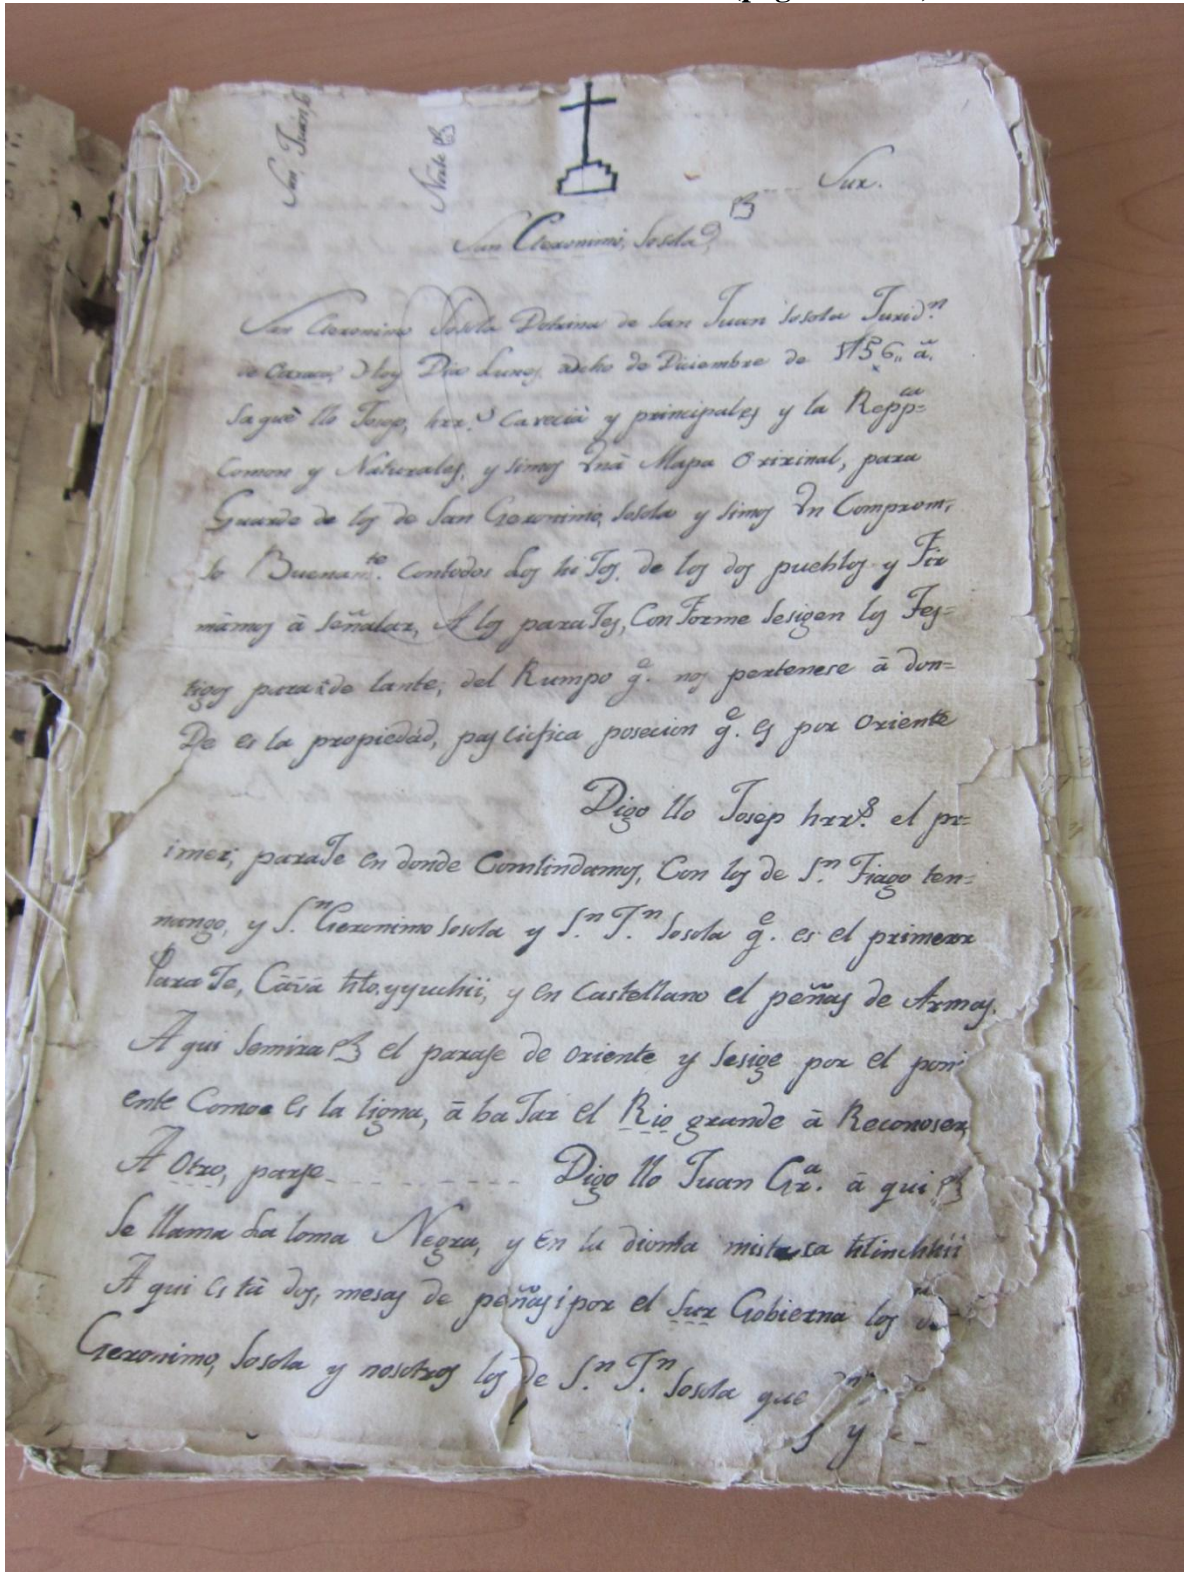 San Juan
Norte
Sur.
San Geronimo, Sosola
San Geronimo Sosola Dotrina de San Juan Sosola Jurid.n
de Oaxaca, Hoy Dia Lunes, adcho de Diciembre de 1756,, ā.
Saguè llo Josep, hrr.s Cavecià y principales, y la Repp.ca=
Comon y Naturales, y simos Vnā Mapa Orixinal, para
Guarde de los de San Geronimo, Sosola y simos Vn Comprom,
so Buenam.te Contodos Los hiJos, de los dos pueblos y Fir
māmos ā señalar, A los paraJes, ConForme Sesigen los Tes=
tigos para de lante, del Rumpo q.e nos pertenese ā don=
De es la propiedad, pas cifica posecion q.e es por Oriente
Digo llo Josep hrr.s el pr=
imer, paraJe en donde Comlindamos, Con los de S.n Tiago ten=
nango, y S.n Geronimo Sosola y S.n J.n Sosola q.e es el primerr
ParaJe, Cāvā tto.yyuchii, y en Castellano el peñas de Armas.
A qui Semira el paraje de oriente y Sesige por el poni
ente Como es la ligna, ā ba Jar el Rio grande ā Reconoser,
A Otro, parje - - - - - - - - - Digo llo Juan Gr.a ā qui
Se llama La loma Negra, y En la dionta misteca ttinchhii
A qui Es tā dos, mesas de peñas; por el Sur Gobierna los
Geronimo, Sosola y nosotros los de S.n J.n Sosola que
y